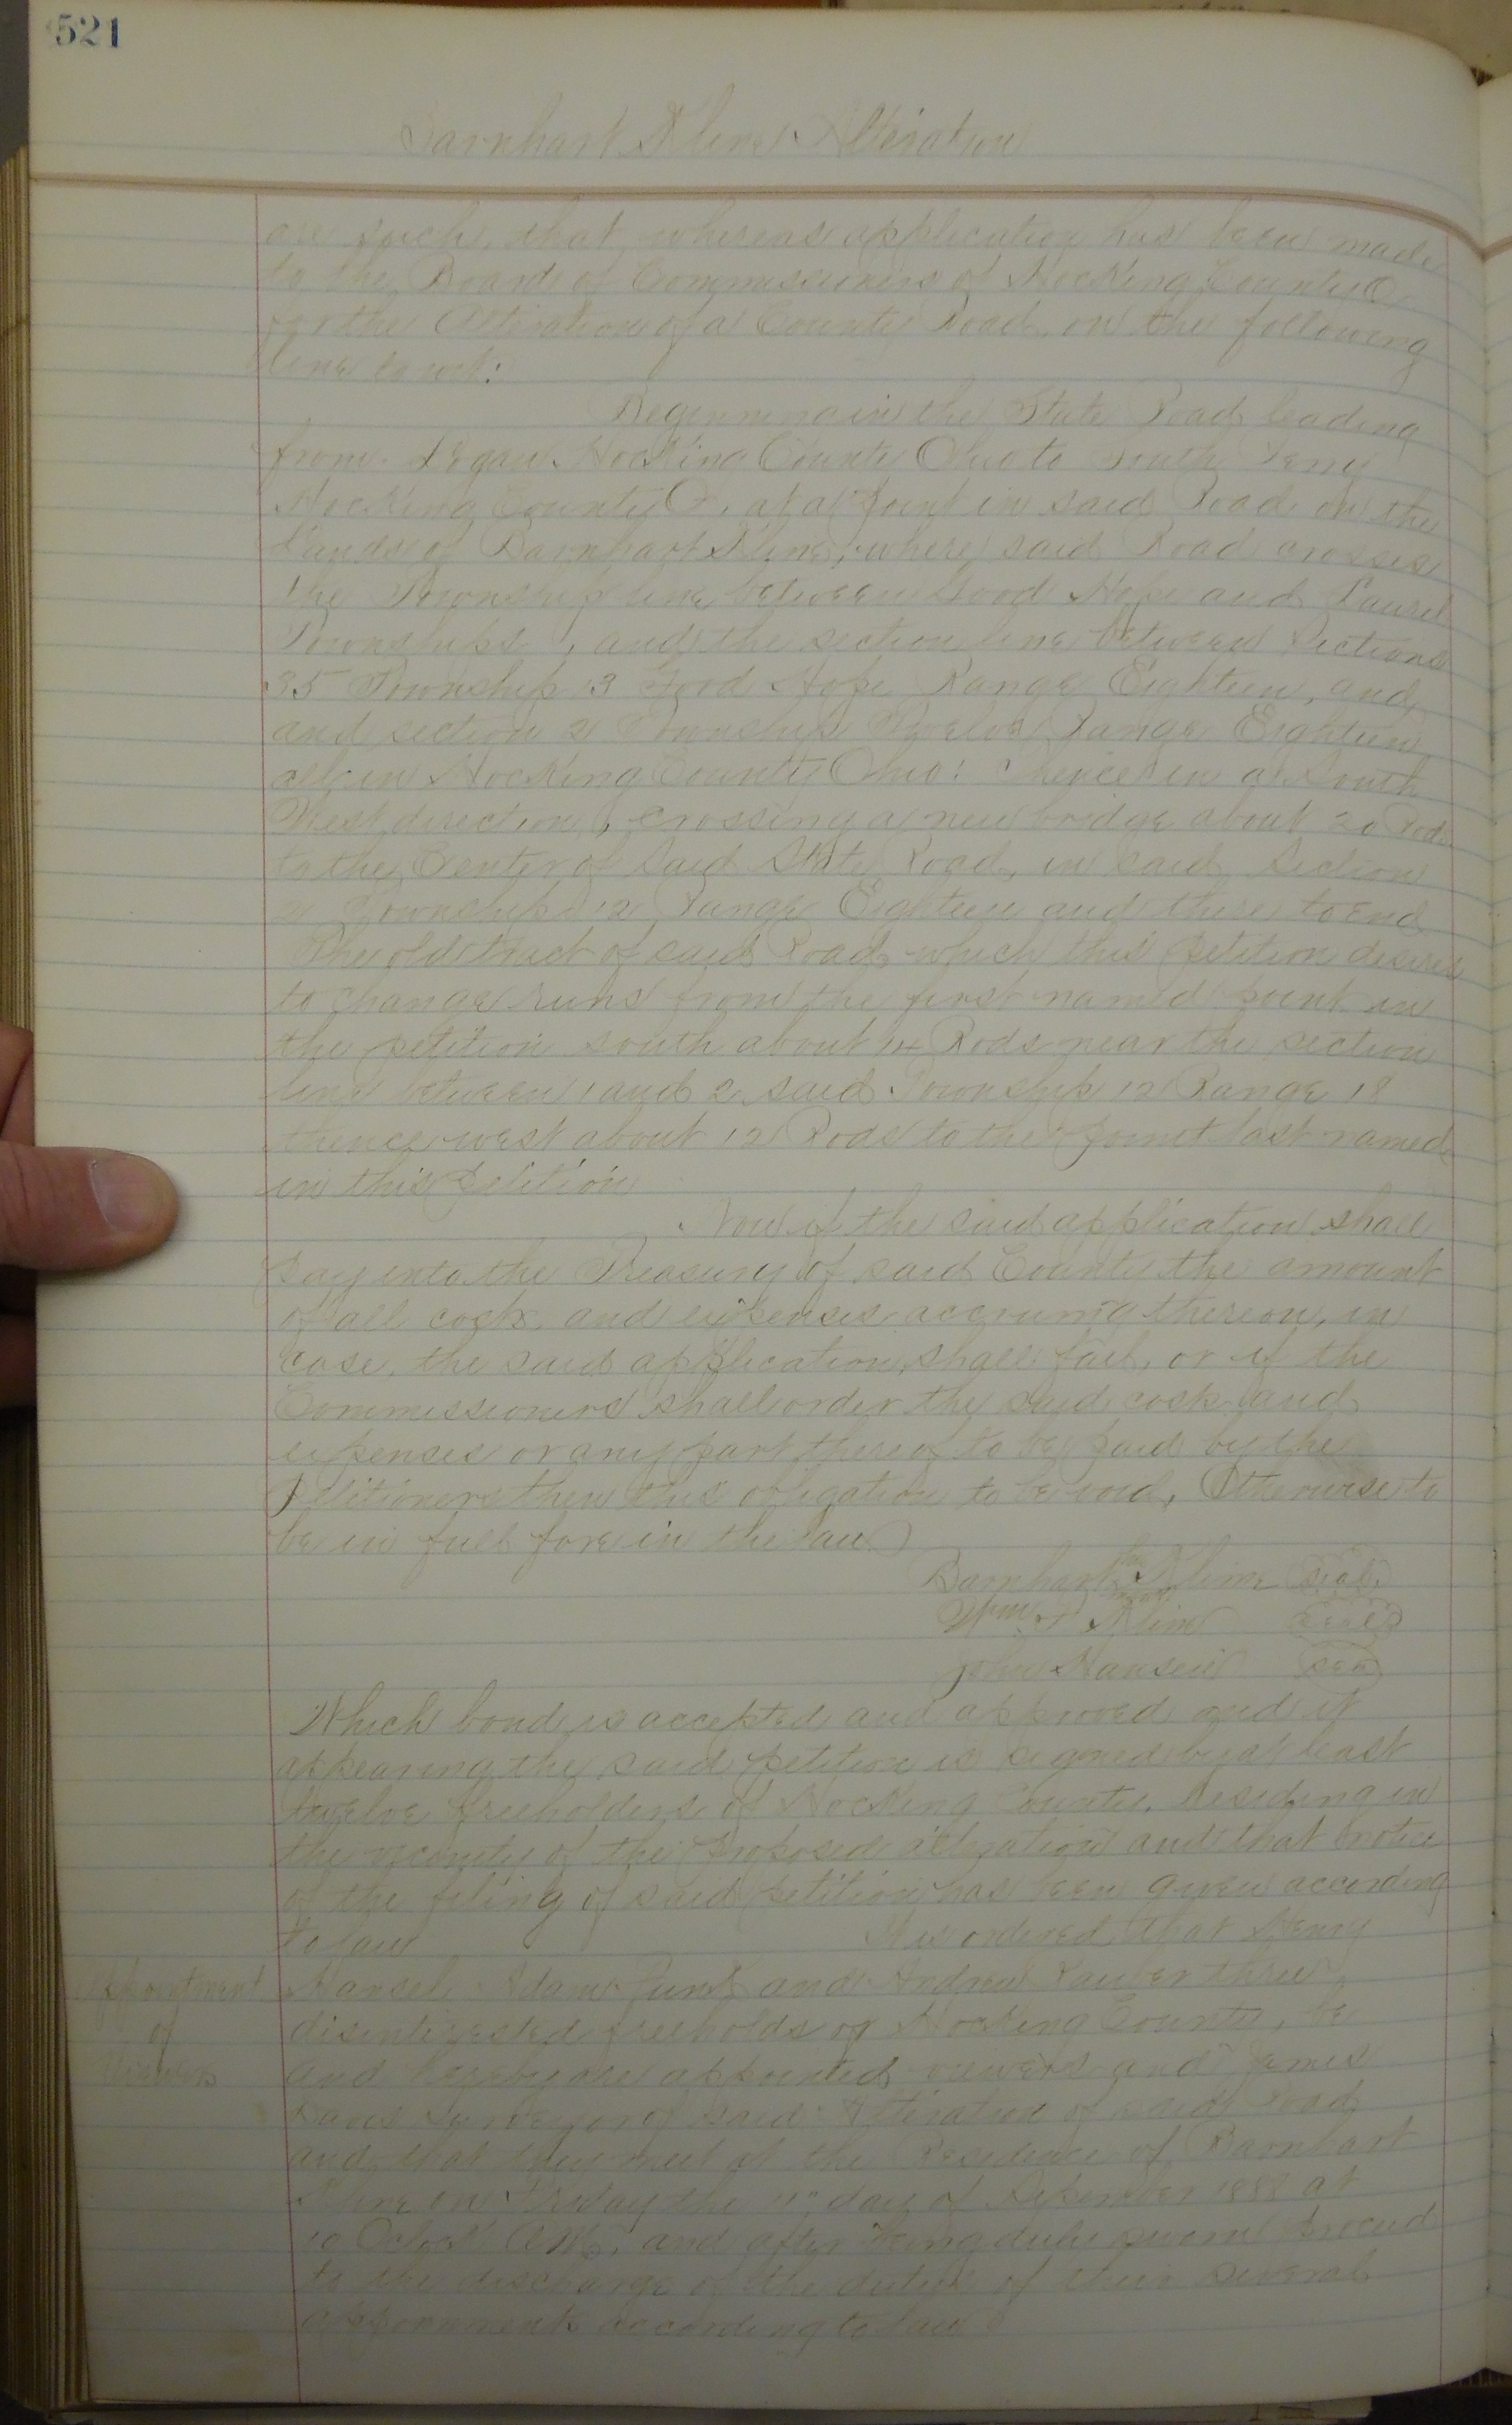 521
Barnhart Kline Alteration
are such, that whereas application has been made
to the Board of Commissioners of Hocking County O
for the Alteration of a County Road on the following
line to wit:
Beginning in the State Road leading
from Logan Hocking County Ohio to South Perry
Hocking County O, at a point in said Road on the
Lands of Barnhart Kline, where said Road crosses
the Township line between Good Hope and Laurel
Townships, and the section line between Sections
35 Township 13 Good Hope Range Eighteen, and
and section 2 Township Twelve Range Eighteen
all in Hocking County Ohio: Thence in a South
West direction, crossing a new bridge about 20 Rods
to the Center of said State Road, in said Section
2 Township 12 Range Eighteen and there to end
The old tract of said Road which this petition desires
to change runs from the first named point in
the petition south about 14 Rods near the section
line between 1 and 2 said Township 12 Range 18
thence west about 12 Rods to the point last named
in this petition
Now if the said application shall
pay into the Treasury of said County the amount
of all costs and expenses accruing thereon, in
case, the said application, shall fail, or if the
Commissioners shall order the said costs and
expenses or any part thereof to be paid by the
Petitioners then this obligation to be void, Otherwise to
be in full fore in the law
Barnhart his Kline seal
mark
Wm P Kline seal
John Hansen sea
Which bond is accepted and approved and it
appearing the said petition is signed by at least
twelve freeholders of Hocking County, Residing in
the vicinity of the proposed alteration and that notice
of the filing of said petition has been given according
to law It is ordered that Henry
Appointment
of
Viewers
Hansel Adam Funk and Andrew three
disinterested freeholds of Hocking County, be
and hereby are appointed viewers and James
Davis Surveyor of said Alteration of said Road
and that they meet at the Residence of Barnhart
Kline on Friday the day of September 1888 at
10 Oclock AM, and after being duly sworn proceed
to the discharge of the duties of their several
appointments according to law